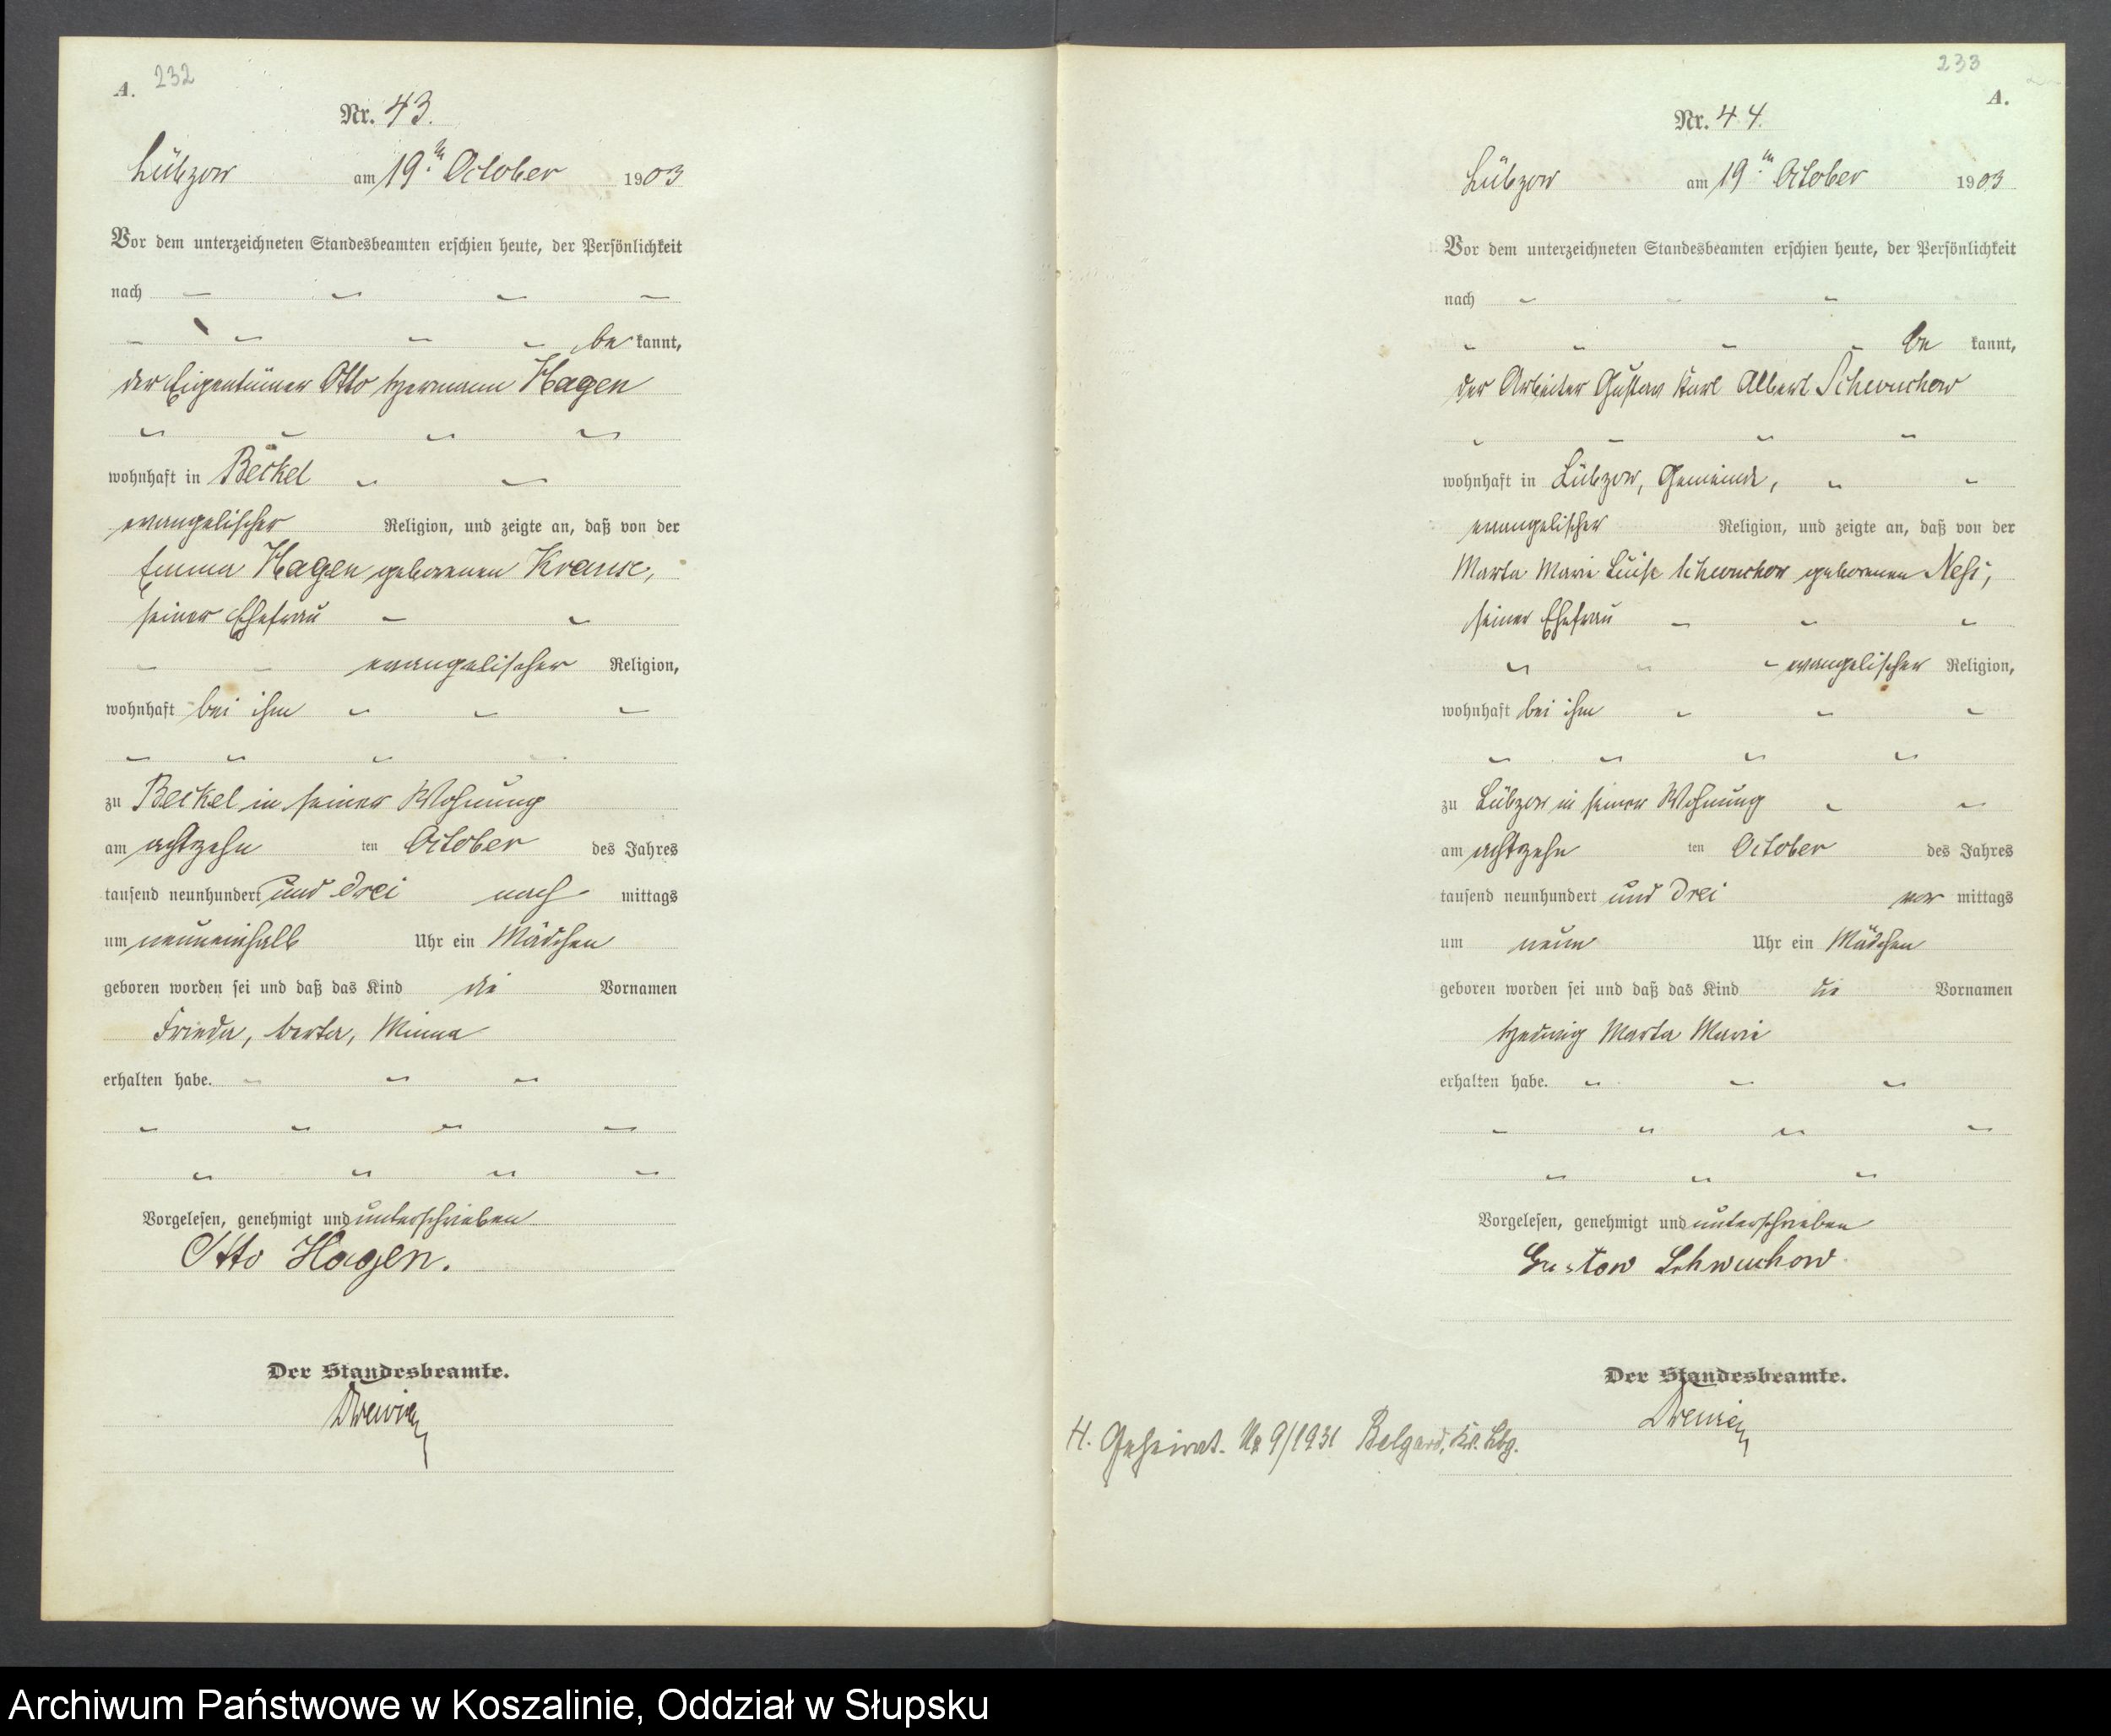 232
A.
Nr. 43.
Lübzow am 19ten October 1903
Vor dem unterzeichneten Standesbeamten erschien heute, der Persönlichkeit
nach
be kannt,
der Eigentümer Otto Hermann Hagen
wohnhaft in Beckel
evangelischer Religion, und zeigte an, daß von der
Emma Hagen geborenen Krause,
seiner Ehefrau
evangelischer Religion,
wohnhaft bei ihm
zu Beckel in seiner Wohnung
am achtzehn ten October des Jahres
tausend neunhundert und drei nach mittags
um neuneinhalb Uhr ein Mädchen
geboren worden sei und daß das Kind die Vornamen
Frieda, Berta, Minna
erhalten habe.
Vorgelesen, genehmigt und unterschrieben
Otto Hagen.
Der Standesbeamte.
233
A.
Nr. 44.
Lübzow am 19ten October 1903
Vor dem unterzeichneten Standesbeamten erschien heute, der Persönlichkeit
nach
be kannt,
der Arbeiter Gustav Karl Albert Schwuchow
wohnhaft in Lübzow, Gemeinde,
evangelischer Religion, und zeigte an, daß von der
Marta Marie Luise Schwuchow geborenen
seiner Ehefrau
evangelischer Religion,
wohnhaft bei ihm
zu Lübzow in seiner Wohnung
am achtzehn ten October des Jahres
tausend neunhundert und drei vor mittags
um neun Uhr ein Mädchen
geboren worden sei und daß das Kind die Vornamen
Hedwig Marta Marie
erhalten habe.
Vorgelesen, genehmigt und unterschrieben
Gustow Schwuchow
Der Standesbeamte.
H. Geheirat. Nr 9/1931 Belgard, Kr. Lbg.
Archiwum Państwowe w Koszalinie, Oddział w Słupsku